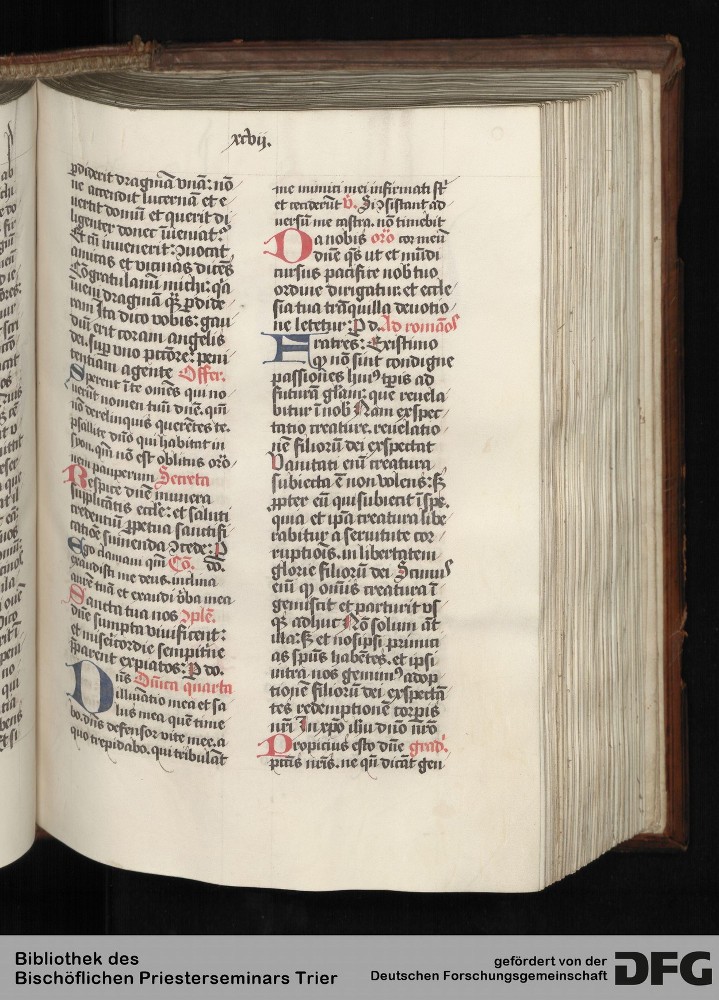 xcvii.
ꝑdiderit dragmā vnā: nō
ne accendit lucernā et e
uertit domū et querit di
ligenter donec īueniat?
Et cū inuenerit: ꝯuocat
amicas et vicinas dicēs
Cōgratulamī michi: qͣa
inueni dragmā qͣʒ ꝑdide
ram Ita dico vobis: gau
diū erit coram angelis
dei. suꝑ vno pctōre: peni
tentiam agente Offer.
Sperent ī te om̄es qui no
uerūt nomen tuū dn̄e. qm̄
nō derelinquis querētes te.
psallite dn̄o qui habitat in
syon. qm̄ nō est oblitus orō
nem pauperum Secreta
Respice dn̄e munera
supplicātis eccle: et saluti
credentiū ꝑpetua sanctifi
catiōe sumenda ꝯcede: P
Ego clamaui qm̄ Cō. do.
exaudisti me deus. inclina
aurē tuā et exaudi v̄ba mea
Sancta tua nos ꝯplē.
dn̄e sumpta viuificent:
et misericordie sempit̄ne
p̄parent expiatos: P do.
Dn̄s Dn̄ica quarta
illuīatio mea et sa
lus mea quē time
bo. dn̄s defensor vite mee. a
quo trepidabo. qui tribulāt
me inimici mei infirmati st̄
et ceciderūt v̄. Si ꝯsistant ad
uersū me castra. nō timebit
Da nobis orō cor meū
dn̄e qs̄ ut et mūdi
cursus pacifice nob̄ tuo
ordine dirigatur. et eccle
sia tua trāquilla deuotio
ne letetur: P d. Ad romāos
Fratres: Existimo
ꝙ nō sint condigne
passiones huiꝰ tp̄is ad
futurā gl̄am: que reuela
bitur ī nob̄ Nam exspec
tatio creature. reuelatio
nē filiorū dei exspectat
Vanitati eī creatura
subiecta ē non volens: sʒ
ꝓpter eū qui subiecit ī spe.
quia et ip̄a creatura libe
rabitur a seruitute cor
ruptiōis. in libertatem
glorie filiorū dei Scimus
eī ꝙ om̄is creatura ī
gemiscit et parturit vs
qʒ adhuc Nō solum aūt
illa: sʒ et nosipsi primici
as sp̄us habētes. et ipsi
intra nos gemimꝰ adop
tionē filiorū dei exspectā
tes redemptionē corꝑis
nr̄i In xp̄o ihū dn̄o nr̄o
Propicius esto dn̄e grad.
pctīs nr̄is. ne qn̄ dicāt gen
Bibliothek des
Bischöflichen Priesterseminars Trier
gefördert von der
Deutschen Forschungsgemeinschaft
DFG